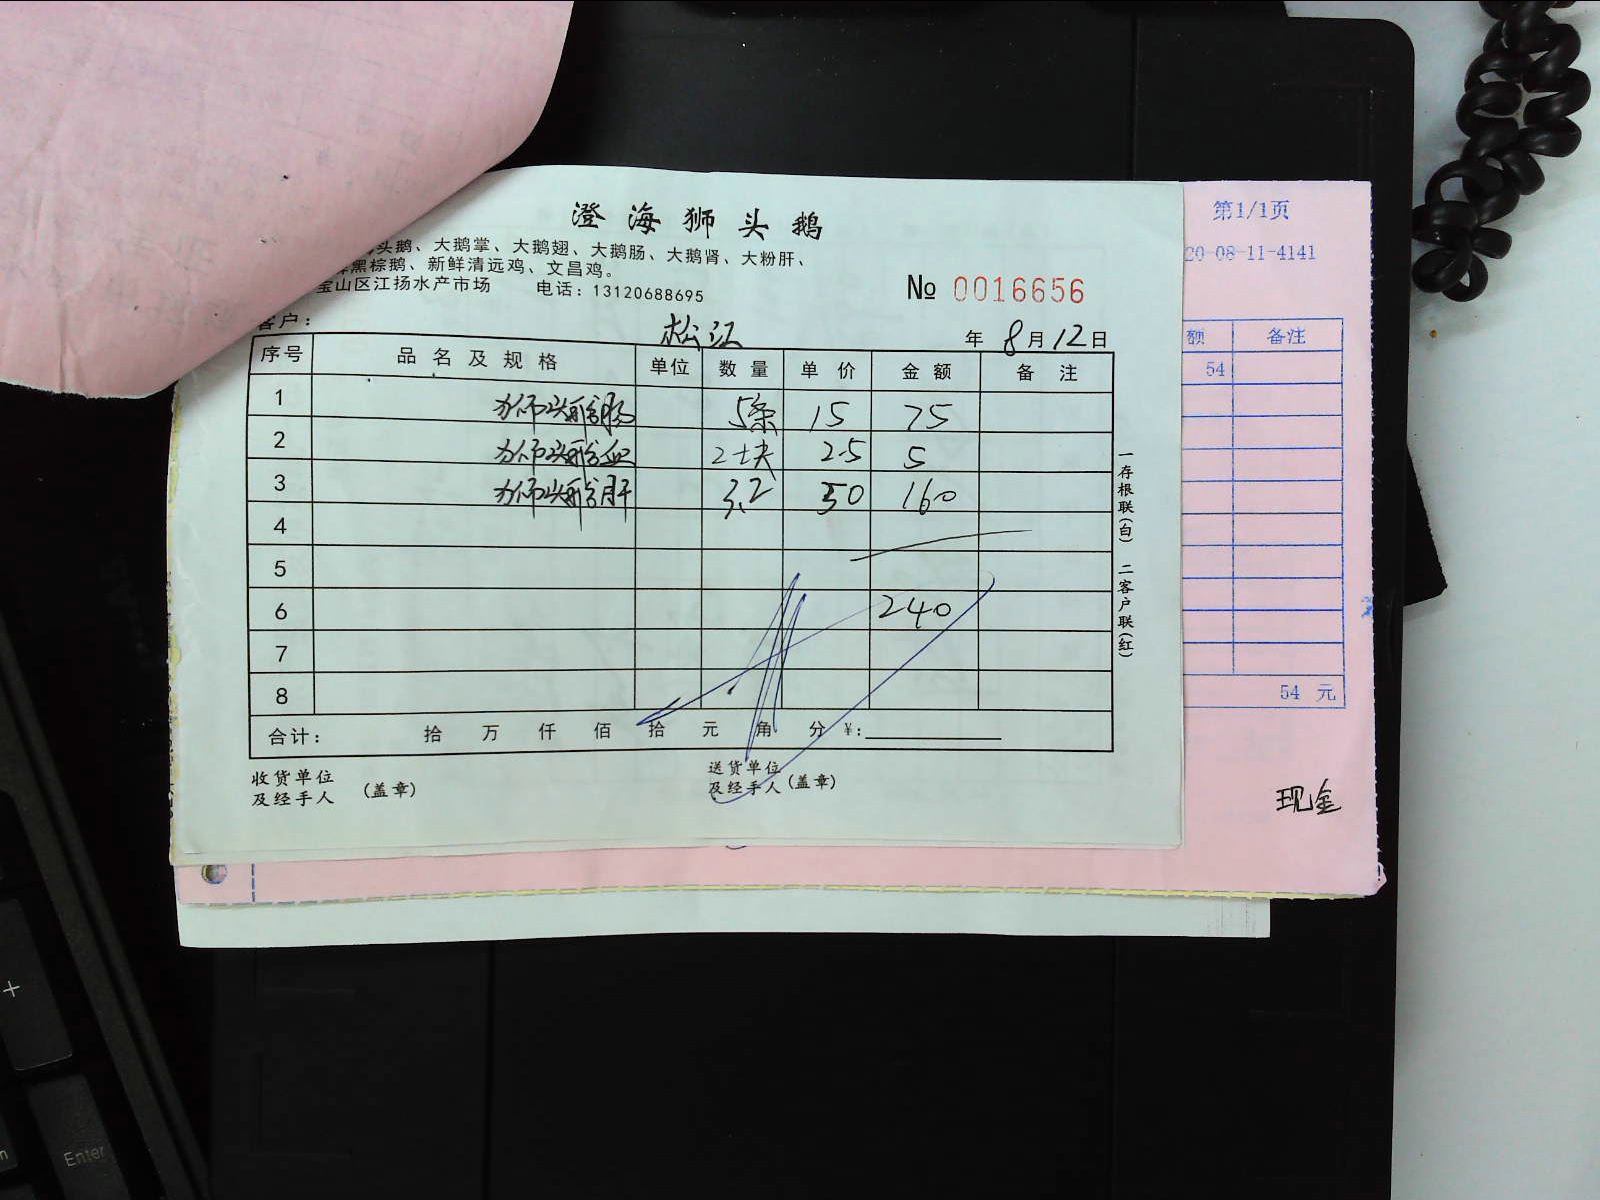 澄海狮头鹅
头鹅、大鹅掌、大鹅翅、大鹅肠、大鹅肾、大粉肝、
黑棕鹅、新鲜清远鸡、文昌鸡。
宝山区江扬水产市场 电话：13120688695
№ 0016656
客户： 松江 年 8 月 12 日
序号 品名及规格 单位 数量 单价 金额 备注
1 狮头鹅肠 5条 15 75
2 狮头鹅血 2块 2.5 5
3 狮头鹅肝 3.2 50 160
4
5
6 240
7
8
合计： 拾 万 仟 佰 拾 元 角 分 ¥:
收货单位
及经手人 (盖章)
送货单位
及经手人 (盖章)
一存根联(白) 二客户联(红)
第1/1页
20-08-11-4141
额 备注
54
54 元
现金
+
Enter